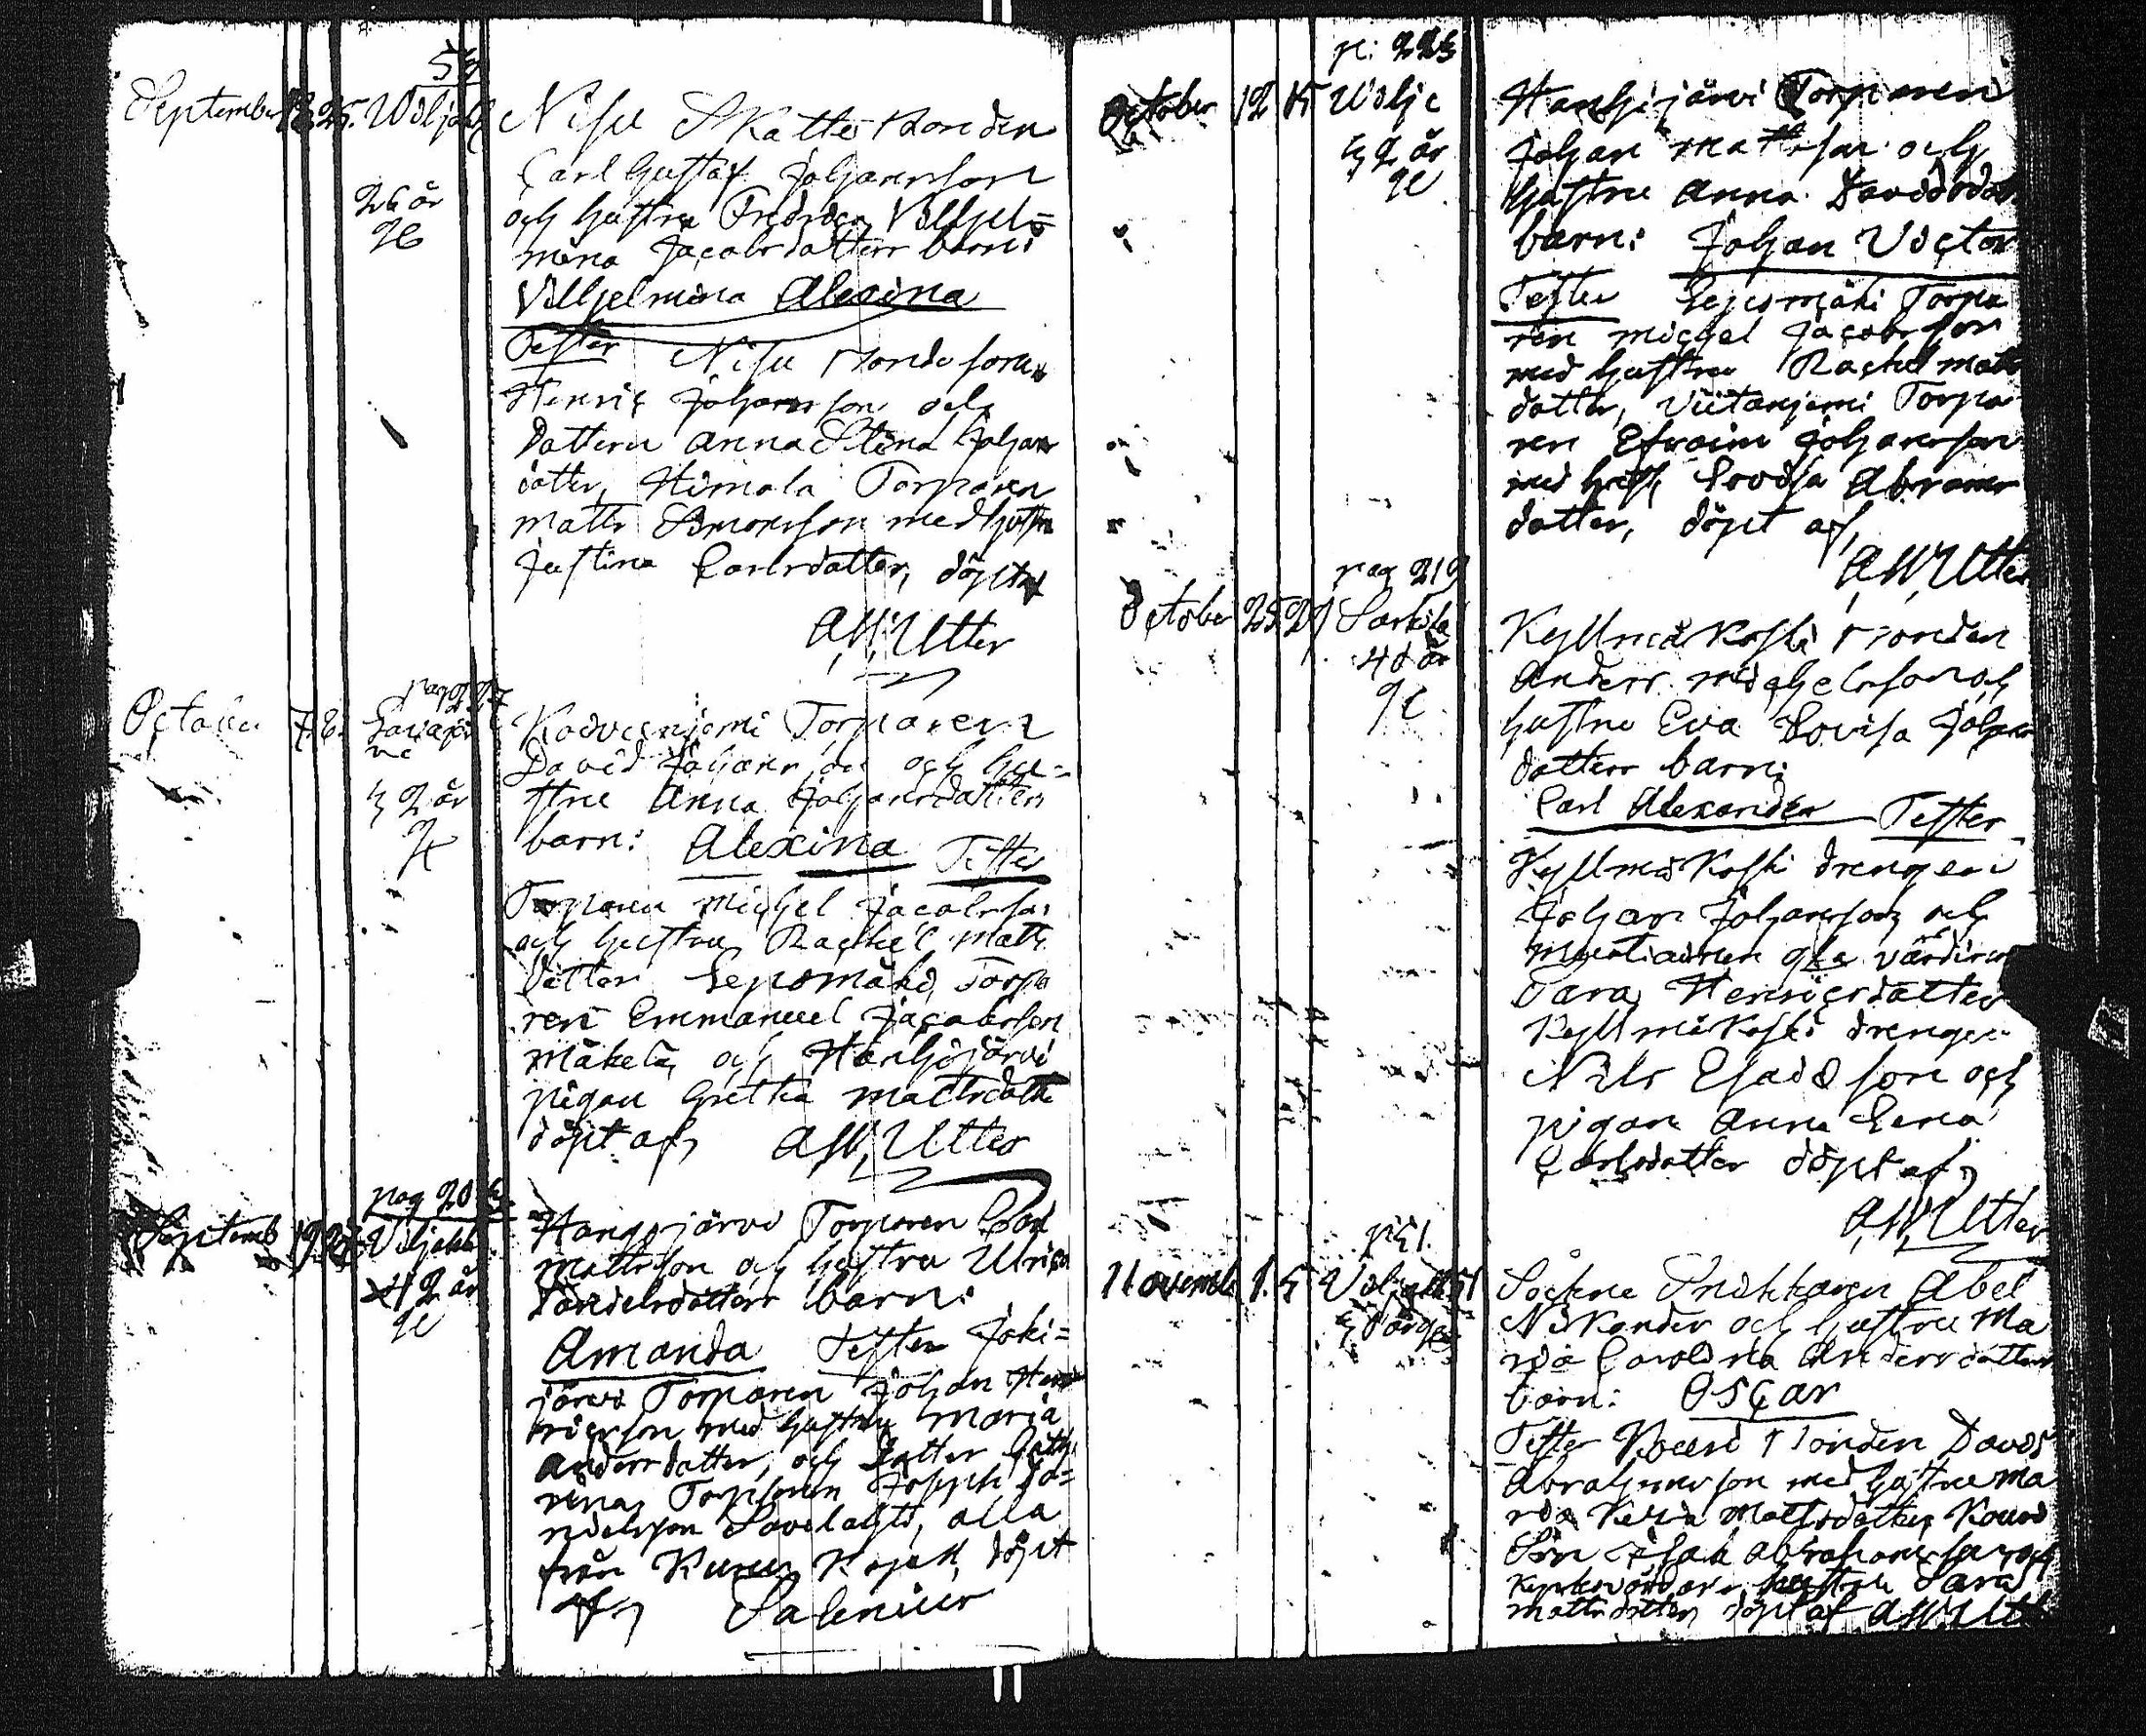 September 25. Wiljak
26 år
Nisu Skatte bonden
Carl Gustaf Johansson
och hustru Fredrica Vilhjel=
mina Jacobsdotters barn:
Vilhjelmina Alexina
Tester Nisu bondesonen
Henric Johansson och
dattern Anna Stina Johans
datter, Himola Torparen
Matts Simonsson med hustru
Justina Carlsdatter, döpt af
A.W. Utter
pag 227
October 7. 8.
42 år
Koivuniemi Torparen
David Johansson och hu=
stru Anna Johansdatters
barn: Alexina Tester
Torparen Michel Jacobsson
och hustru Rachel Matts
datter Lepomäki, Torpa
ren Emmanuel Jacobsson
Mäkelä, och Hanhijärvi
pigan Gretha Mattsdatter
döpt af, A.W. Utter
pag 20
Septemb 19 27 Viljakk
42 år
Hangojärvi Torparen Carl
Mattsson och hustru Ulrica
Danielsdotters barn:
Amanda Tester Joki=
järvi Torparen Johan Hen
ricsson med hustru Maria
Andersdatter, och datter Cath
rina, Torparen Joseph Da=
nielsson Savilahti, alla
från Kuru Kapell, döpt
af, Salenius
p: 223
October 12 15 Wilja
42 år
Hanhijärvi Torparen
Johan Mattsson och
hustru Anna Davidsdot
barn: Johan Victor
Tester Lepomäki Torpa
ren Michel Jacobsson
med hustru Rachel Matts
datter, Viitaniemi Torpa
ren Efraim Johansson
med hust. Lovisa Abrams
datter, döpt af,
A.W. Utter
pag 219
October 25 27 Sarkila
40 år
Kyllmäkoski bonden
Anders Michelsson och
hustru Eva Lovisa Johans
dotters barn:
Carl Alexander Tester
Kyllmäkoski drengen
Johan Johansson och
gla värdinnan
Sara Henricsdatter
Kyllmäkoski drengen
Nils Esaiasson och
pigan Anna Lena
Carlsdatter döpt af,
A.W. Utter
p 51.
Novemb 1. 5 Viljakk
Sockne Snickaren Abel
Nikander och hustru Ma
ria Carolina Andersdatters
barn: Oscar
Tester bonden David
Abrahamsson med hustru Ma
ria Mattsdatter,
Son Isak Abrahamsson och
hustru Sara
Mattsdatter, döpt af A.W. Utt